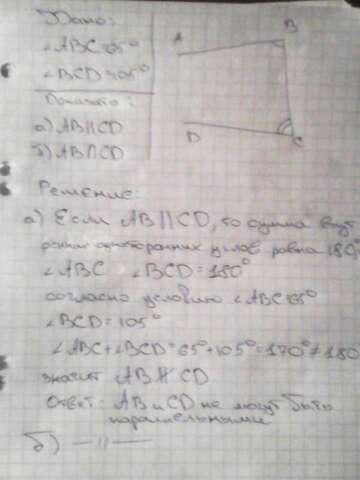 Дано:
∠ABC=65°
∠BCD=105°
Показать:
а) AB∥CD
б) AB∩CD
A
B
D
C
Решение:
а) Если AB∥CD, то сумма внут
ренних односторонних углов равна 180°
∠ABC ∠BCD=180°
согласно условию ∠ABC=65°
∠BCD=105°
∠ABC+∠BCD=65°+105°=170°≠180
значит AB∦CD
Ответ: AB и CD не могут быть
параллельными
б) —〃—